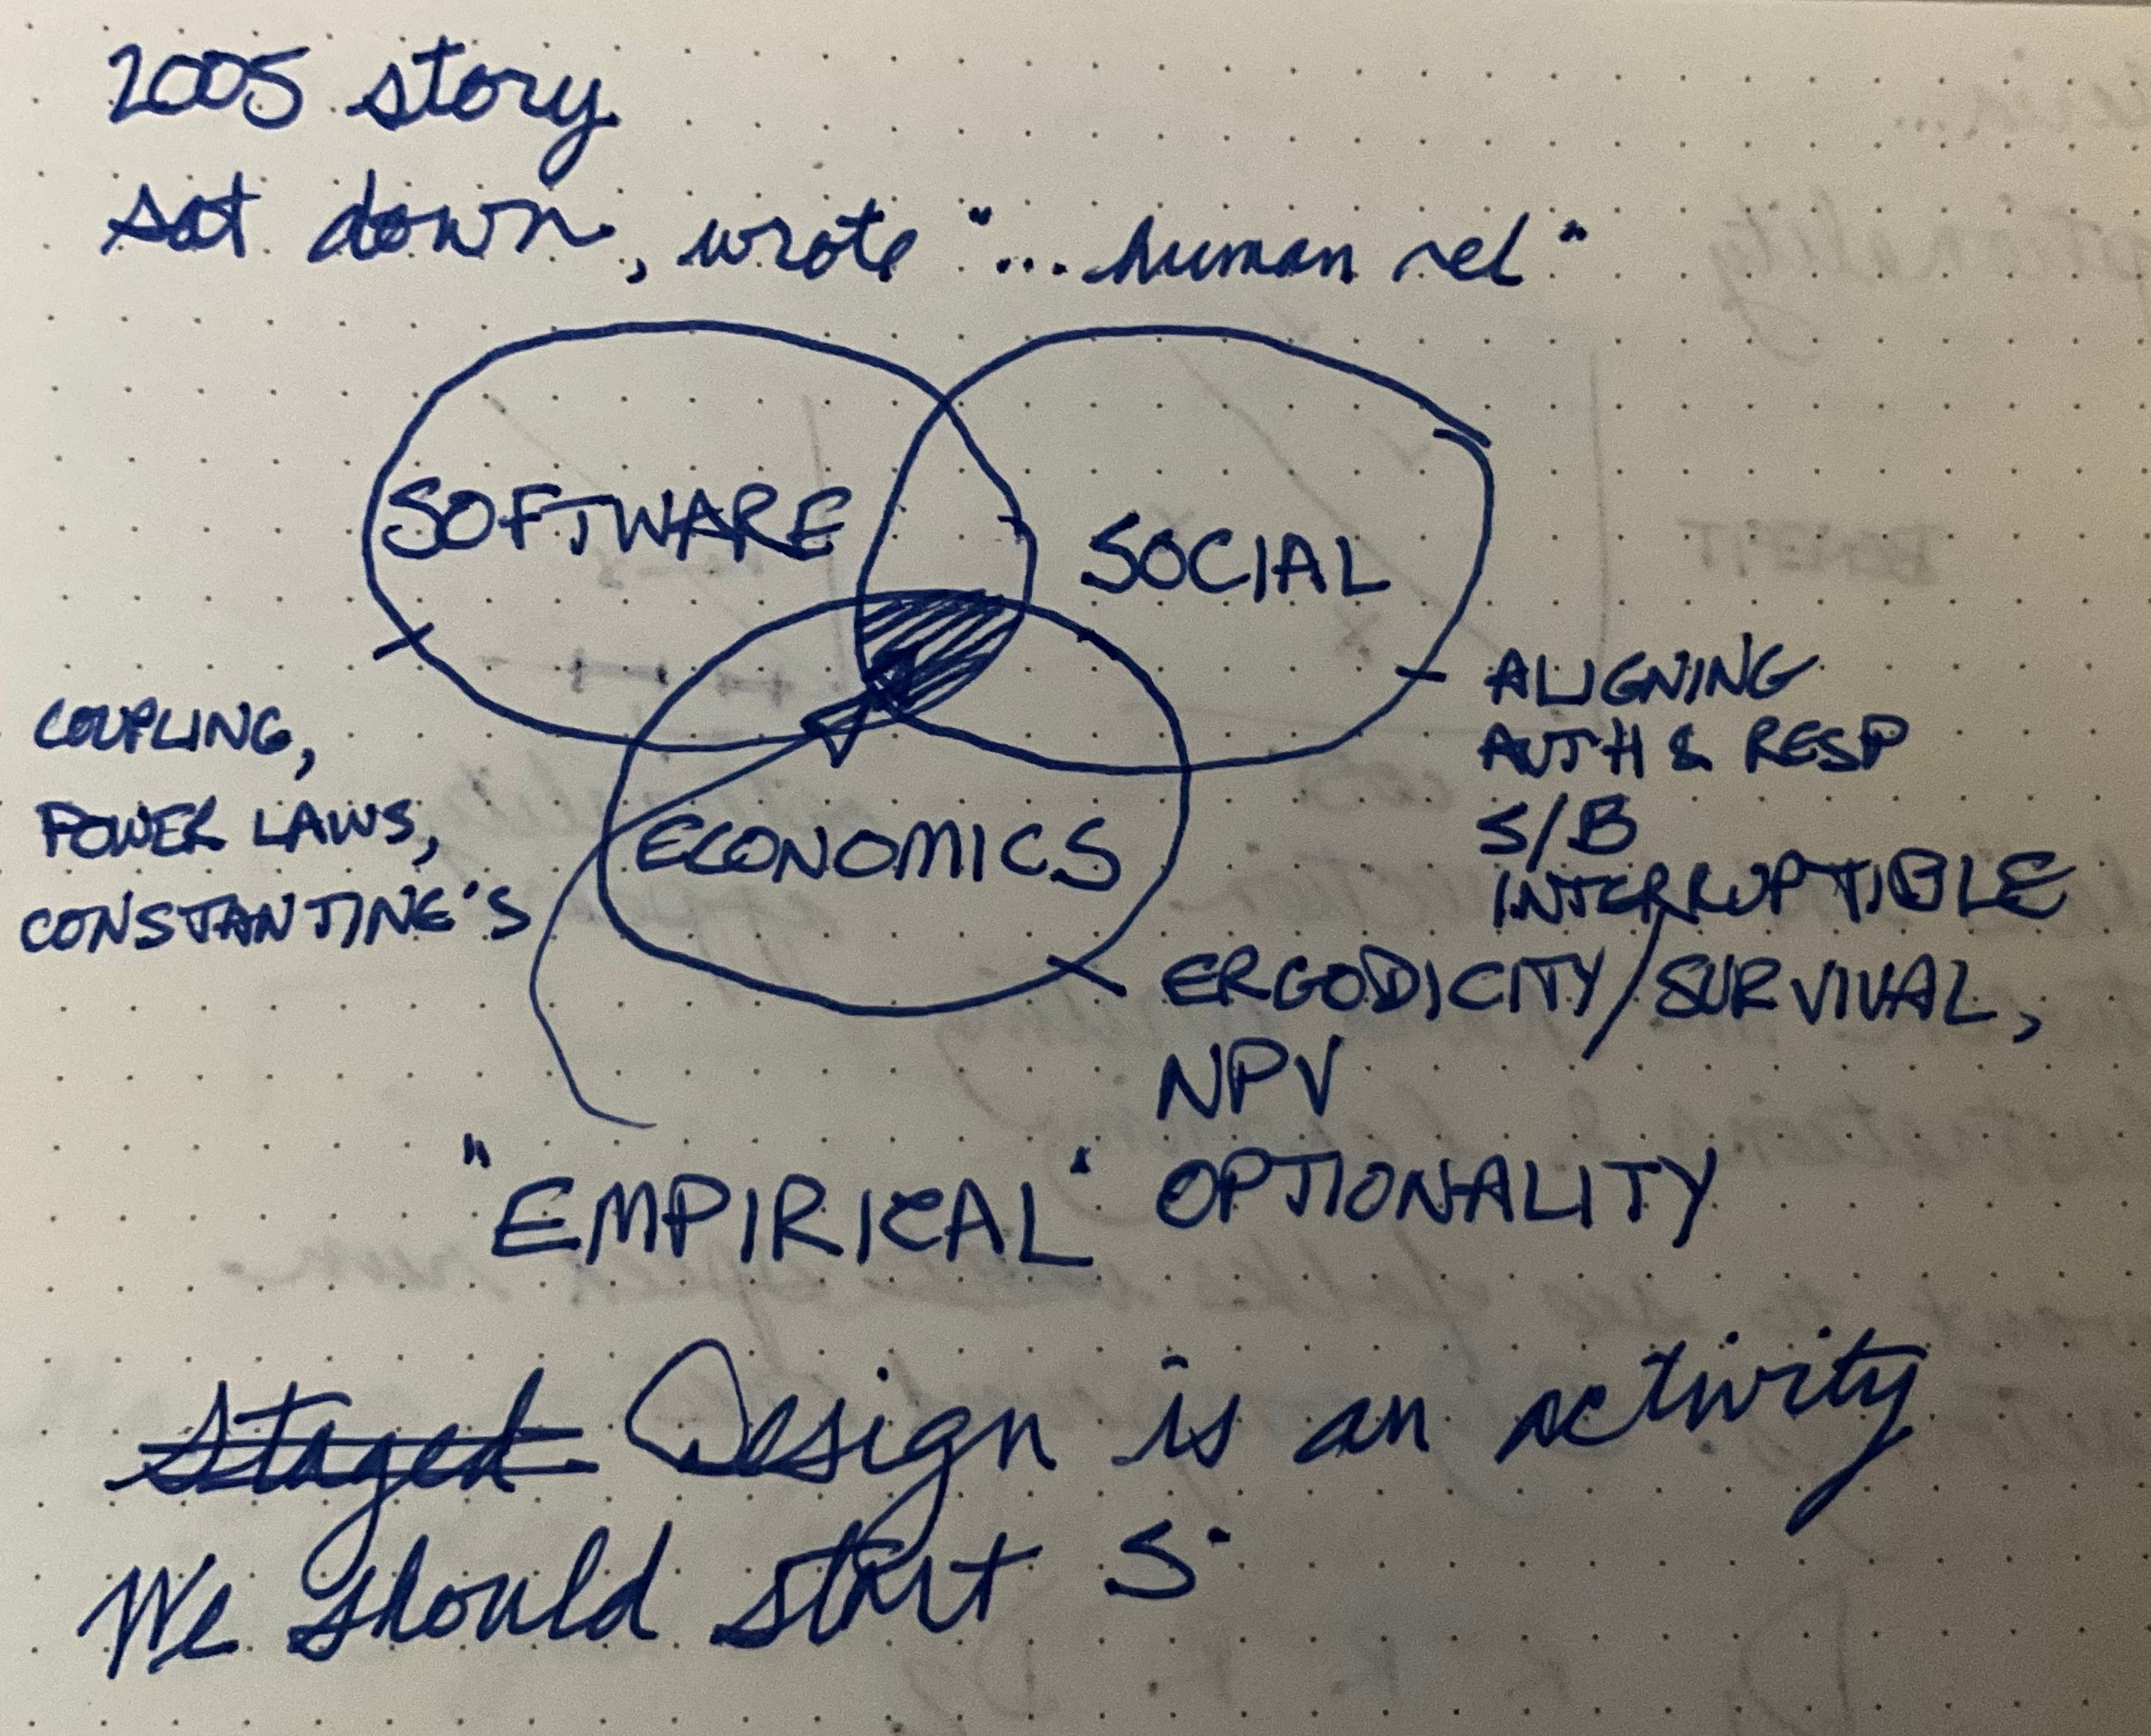 2005 story
sat down, wrote "...human rel"
SOFTWARE
SOCIAL
ECONOMICS
COUPLING,
POWER LAWS,
CONSTANTINE'S
ALIGNING
AUTH & RESP
S/B
INTERRUPTIBLE
ERGODICITY/SURVIVAL,
NPV
OPTIONALITY
"EMPIRICAL"
Staged Design is an activity
We should start S